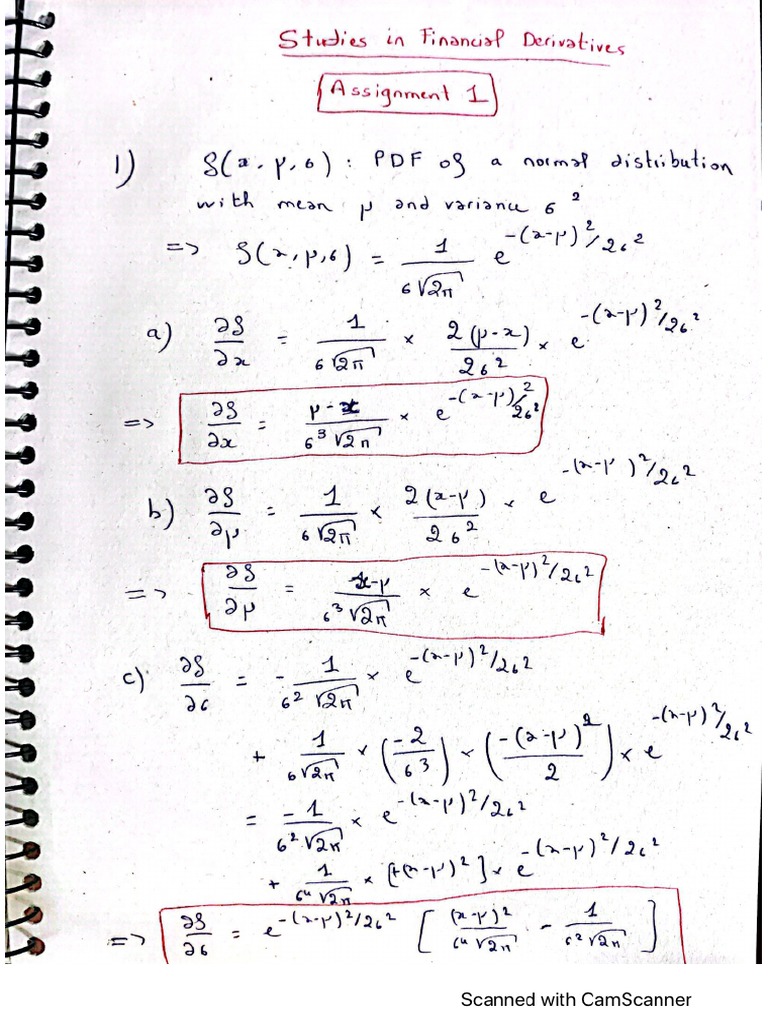 Studies in Financial Derivatives
Assignment 1
1) f(x, μ, σ) : PDF of a normal distribution
with mean μ and variance σ²
=> f(x, μ, σ) = 1/(σ√2π) e^(-(x-μ)²/2σ²)
a) ∂f/∂x = 1/(σ√2π) × 2(μ-x)/2σ² × e^(-(x-μ)²/2σ²)
=> ∂f/∂x = (μ-x)/(σ³√2π) × e^(-(x-μ)²/2σ²)
b) ∂f/∂μ = 1/(σ√2π) × 2(x-μ)/2σ² × e^(-(x-μ)²/2σ²)
=> ∂f/∂μ = (x-μ)/(σ³√2π) × e^(-(x-μ)²/2σ²)
c) ∂f/∂σ = - 1/(σ²√2π) × e^(-(x-μ)²/2σ²)
+ 1/(σ√2π) × (-2/σ³) × (-(x-μ)²/2) × e^(-(x-μ)²/2σ²)
= -1/(σ²√2π) × e^(-(x-μ)²/2σ²)
+ 1/(σ⁴√2π) × [+(x-μ)²] × e^(-(x-μ)²/2σ²)
=> ∂f/∂σ = e^(-(x-μ)²/2σ²) [ (x-μ)²/(σ⁴√2π) - 1/(σ²√2π) ]
Scanned with CamScanner